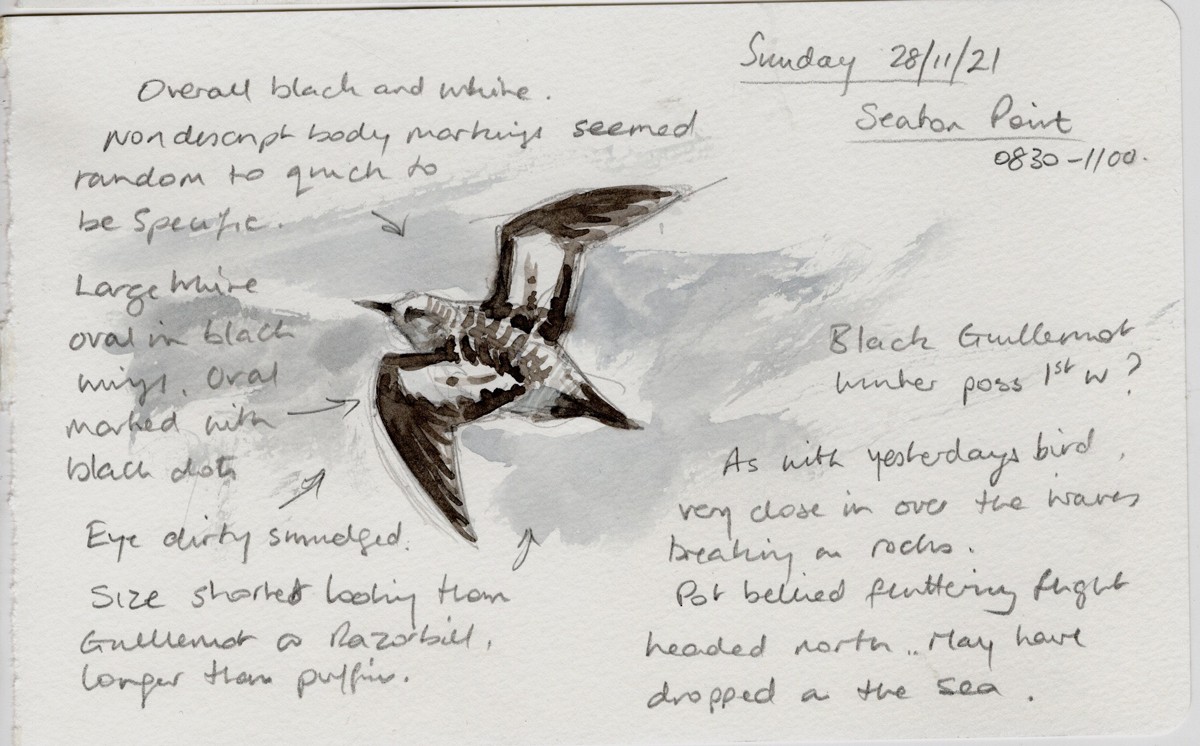 Sunday 28/11/21
Seaton Point
0830-1100.
Overall black and white.
Nondescript body markings seemed
random to quick to
be Specific.
Large white
oval in black
wings. Oval
marked with
black dots
Eye dirty smudged.
Size shorter looking than
Guillemot or Razorbill,
longer than puffin.
Black Guillemot
winter poss 1st w?
As with yesterdays bird,
very close in over the waves
breaking on rocks.
Pot belied fluttering flight
headed north.. May have
dropped on the sea.